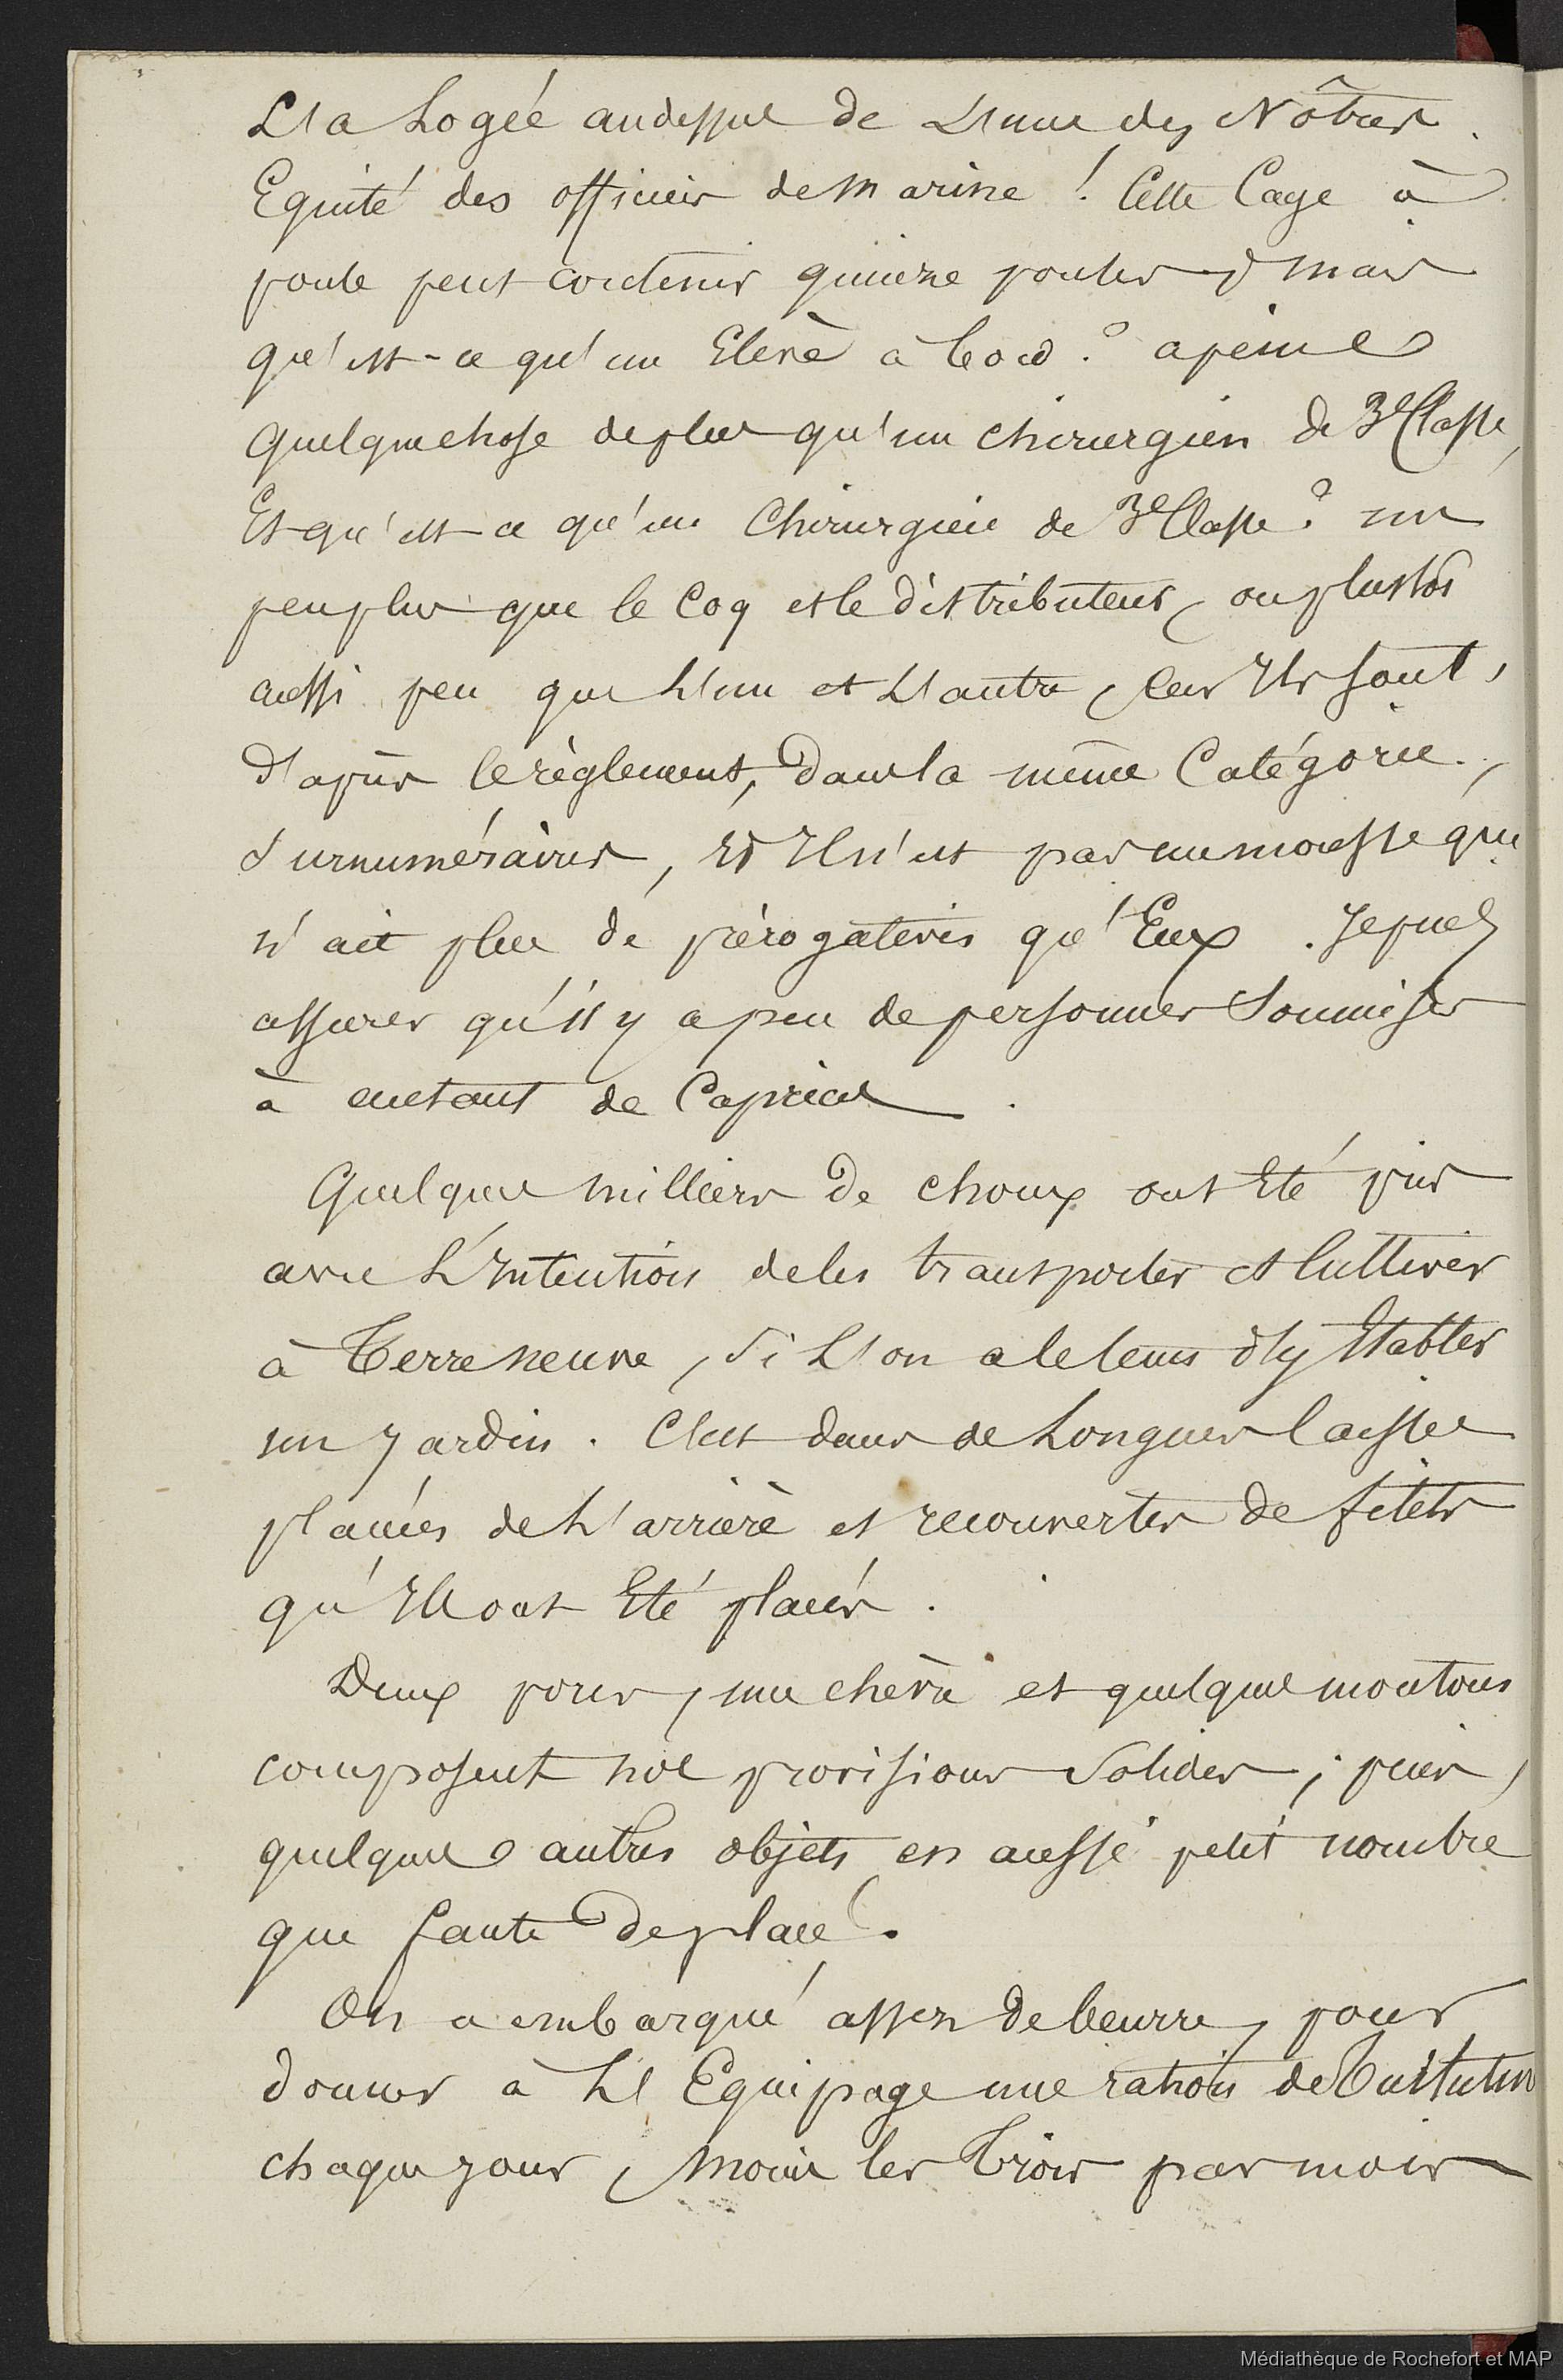 L'a Logée audessus de L'une des Nôtres.
Equité des officiers de marine ! Cette Cage à
poule peut contenir quinze poules, mais
qu'est-ce qu'un Elève à bord ? apeine
quelquechose deplus qu'un chirurgien de 3e Classe,
Et qu'est-ce qu'un Chirurgien de 3e Classe ? un
peu plus que le Coq et le distributeur, ou plustôt
aussi peu que L'un et L'autre, car Ils sont,
d'après le règlement, Dans la même Catégorie,
surnuméraires, Et Il n'est pas un mousse qui
n'ait plus de prérogatives qu'Eux. Je puis
assurer qu'il y a peu de personnes Soumises
à autant de Caprices.
Quelques milliers de choux ont Eté pris
avec L'Intention de les transporter et Cultiver
à Terre neuve, Si L'on a le tems d'y Etablir
un Jardin. C'est dans de Longues Caisses
placées de L'arrière et recouvertes de filets
qu'Ils ont Eté placés.
Deux porcs, une chèvre et quelques moutons
composent nos provisions Solides ; puis,
quelques autres objets en aussi petit nombre
que faute De place.
On a embarqué assez de beurre, pour
donner à L'Equipage une ration de
chaque jour, Moins les Trois par mois
Médiathèque de Rochefort et MAP